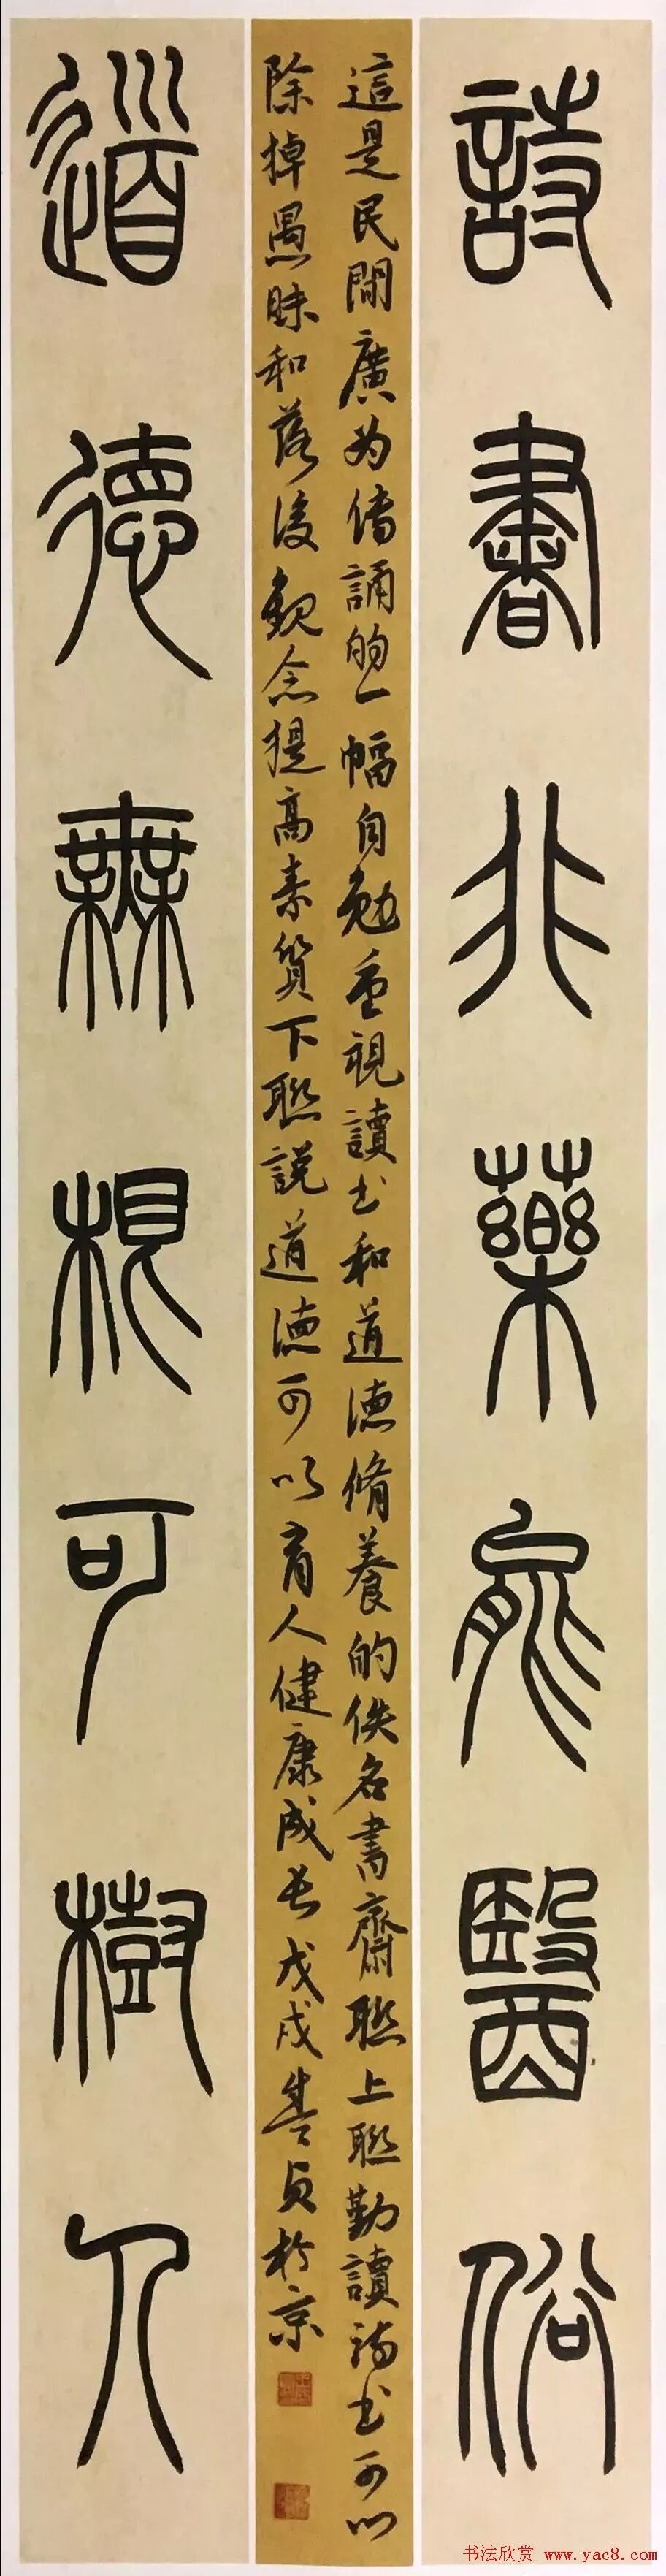 詩書非藥能醫俗
這是民間廣为傳誦的一幅自勉重視讀书和道德脩養的佚名書齋聯上聯勤讀詩书可以
除掉愚昧和落後觀念提高素質下聯説道德可以育人健康成长戊戌貞於京
道德無根可樹人
书法欣赏 www.yac8.com